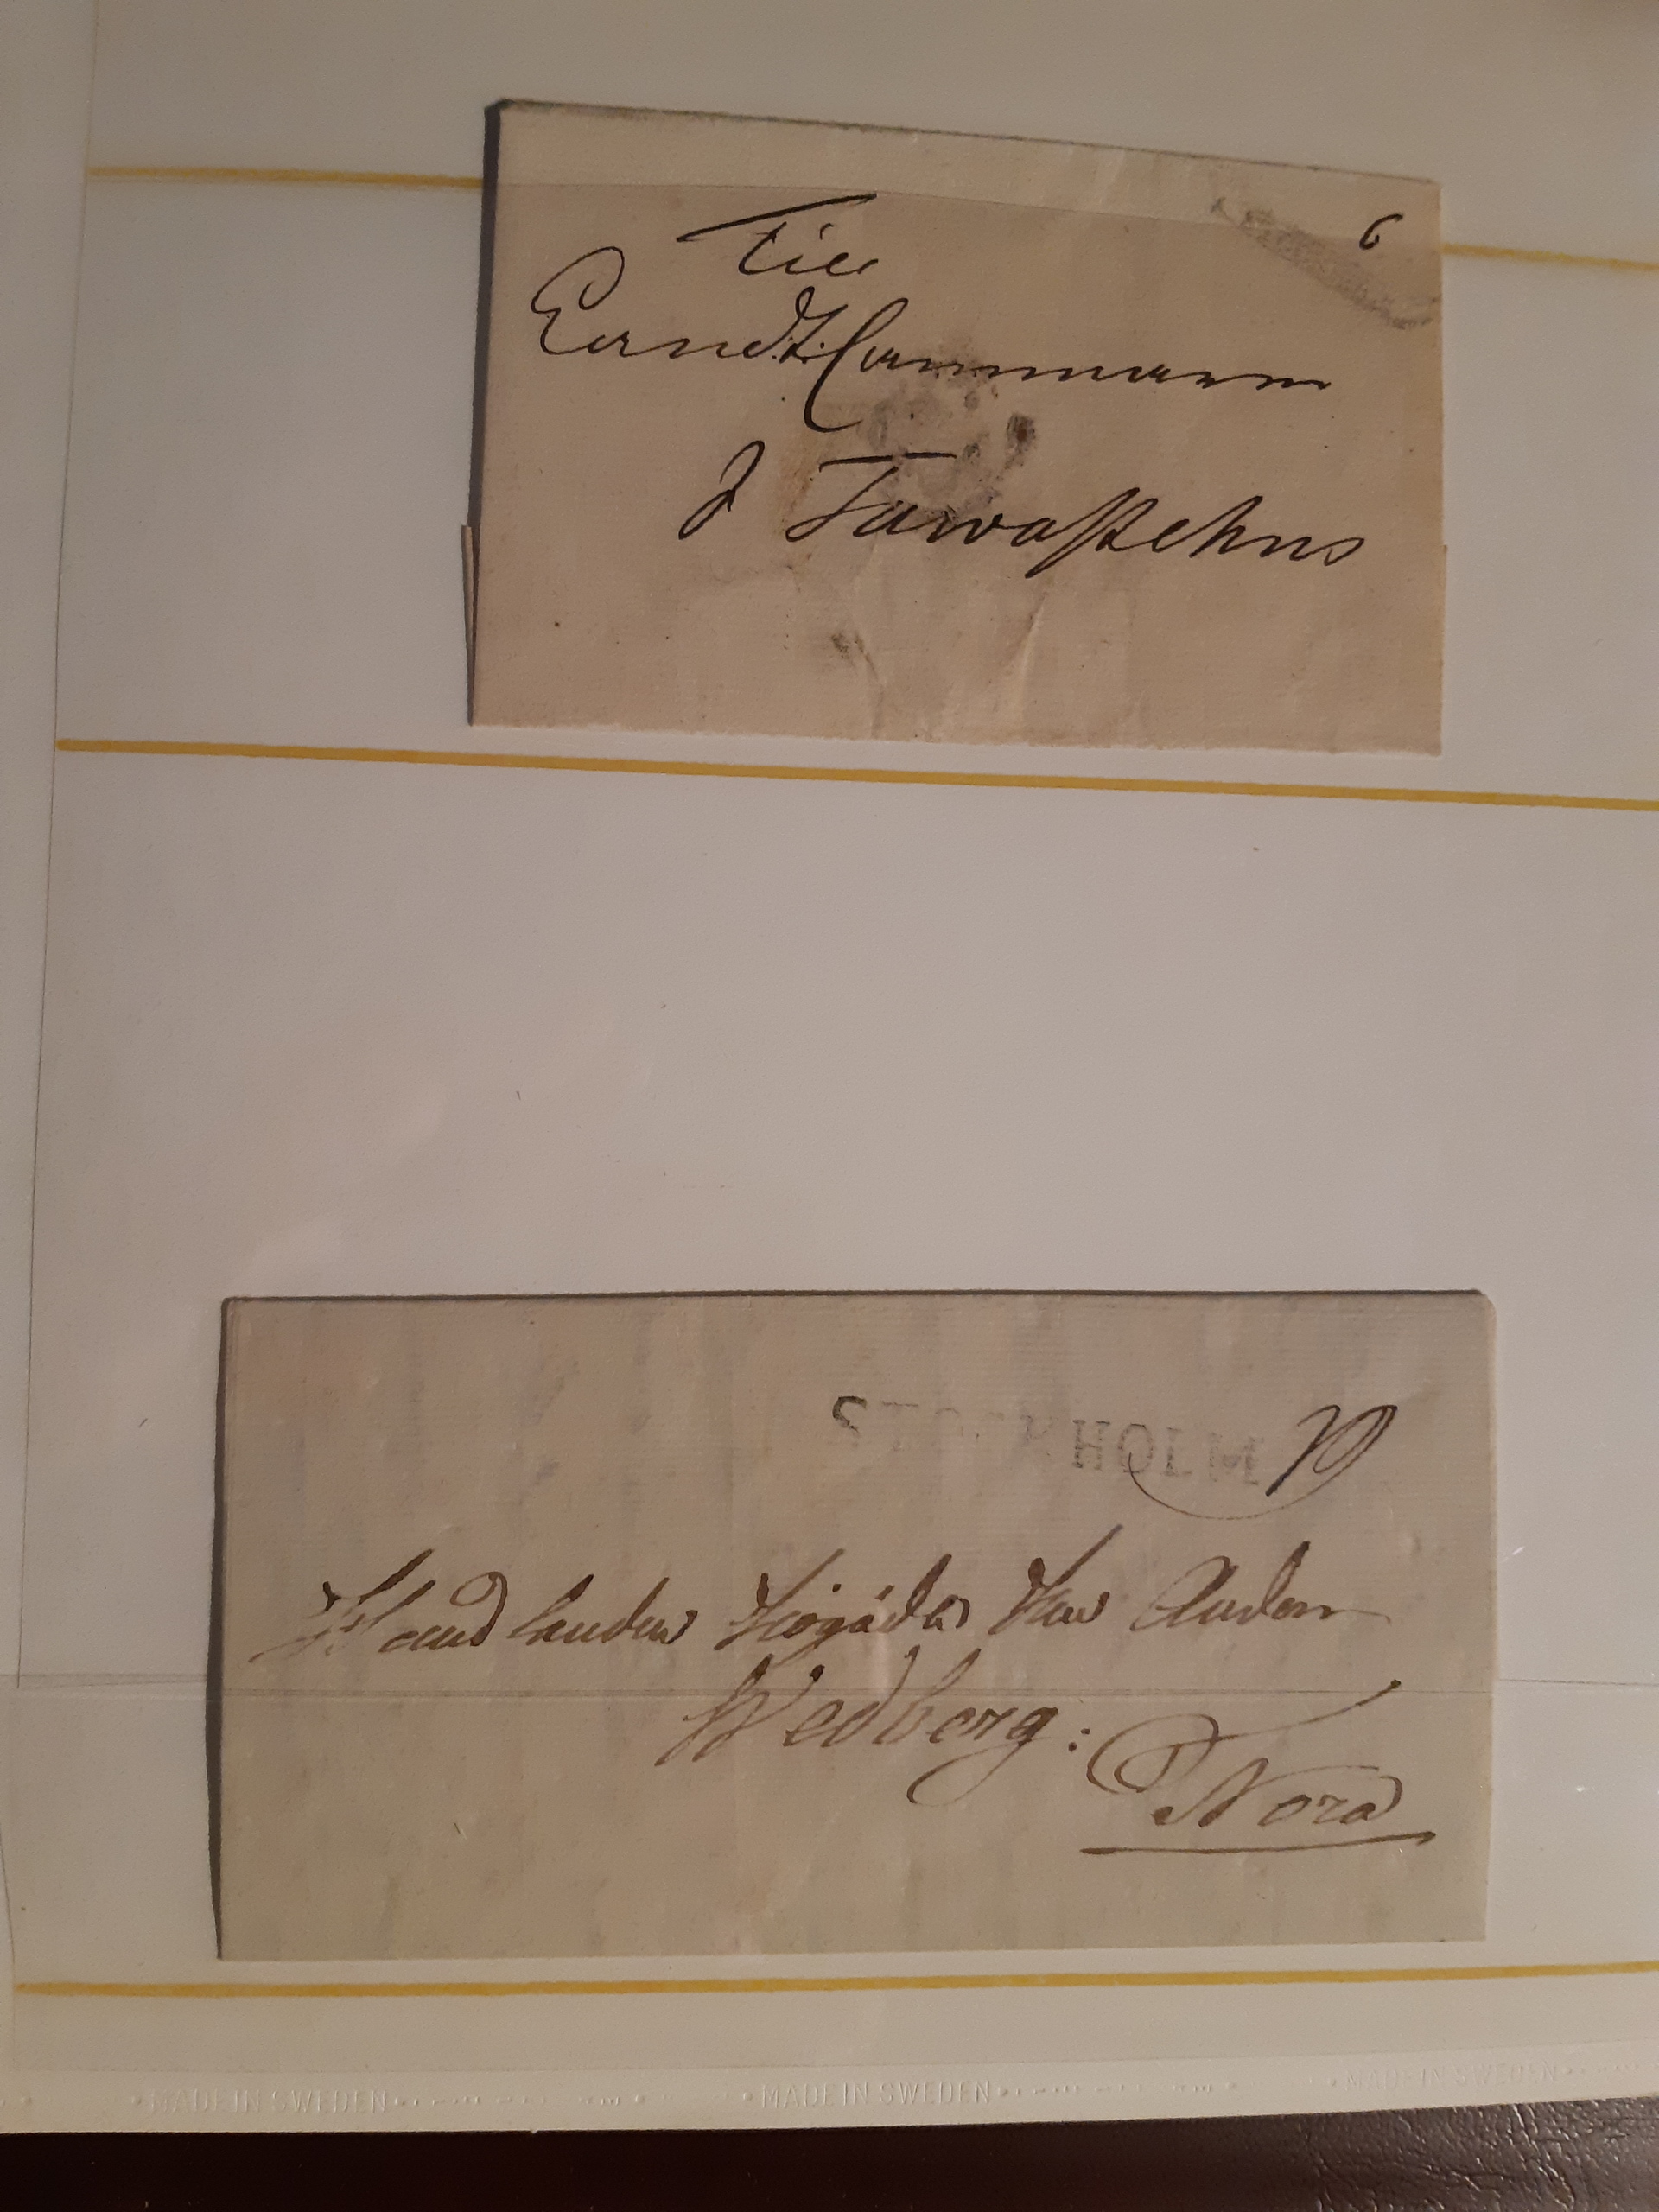 6
Till
I Tawastehus
STOCKHOLM
Handlanden Högädle Herr Anders
Wedberg:
Nora
MADE IN SWEDEN MADE IN SWEDEN MADE IN SWEDEN